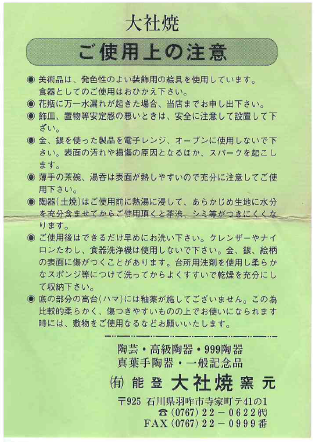 大社焼
ご使用上の注意
◉ 美術品は、発色性のよい装飾用の絵具を使用しています。
食器としてのご使用はおひかえ下さい。
◉ 花瓶に万一水漏れが起きた場合、当店までお申し出下さい。
◉ 飾皿、置物等安定感の悪いときは、安全に注意して設置して下
さい。
◉ 金、銀を使った製品を電子レンジ、オーブンに使用しないで下
さい。表面の汚れや損傷の原因となるほか、スパークを起こし
ます。
◉ 薄手の茶碗、湯呑は表面が熱しやすいので充分に注意してご使
用下さい。
◉ 陶器(土焼)はご使用前に熱湯に浸して、あらかじめ生地に水分
を充分含ませてからご使用頂くと茶渋、シミ等がつきにくくな
ります。
◉ ご使用後はできるだけ早めにお洗い下さい。クレンザーやナイ
ロンたわし、食器洗浄機は使用しないで下さい。金、銀、絵柄
の表面に傷がつくことがあります。台所用洗剤を使用し柔らか
なスポンジ等につけて洗ってからよくすすいで乾燥を充分にし
て収納下さい。
◉ 底の部分の高台(ハマ)には釉薬が施してございません。この為
比較的柔らかく、傷つきやすいものの上でお使いになられます
時には、敷物をご使用なるなどお願いいたします。
陶芸・高級陶器・999陶器
真葉手陶器・一般記念品
㈲ 能登 大社焼 窯元
〒925 石川県羽咋市寺家町テ41の1
☎ (0767) 22-0622㈹
FAX (0767) 22-0999番